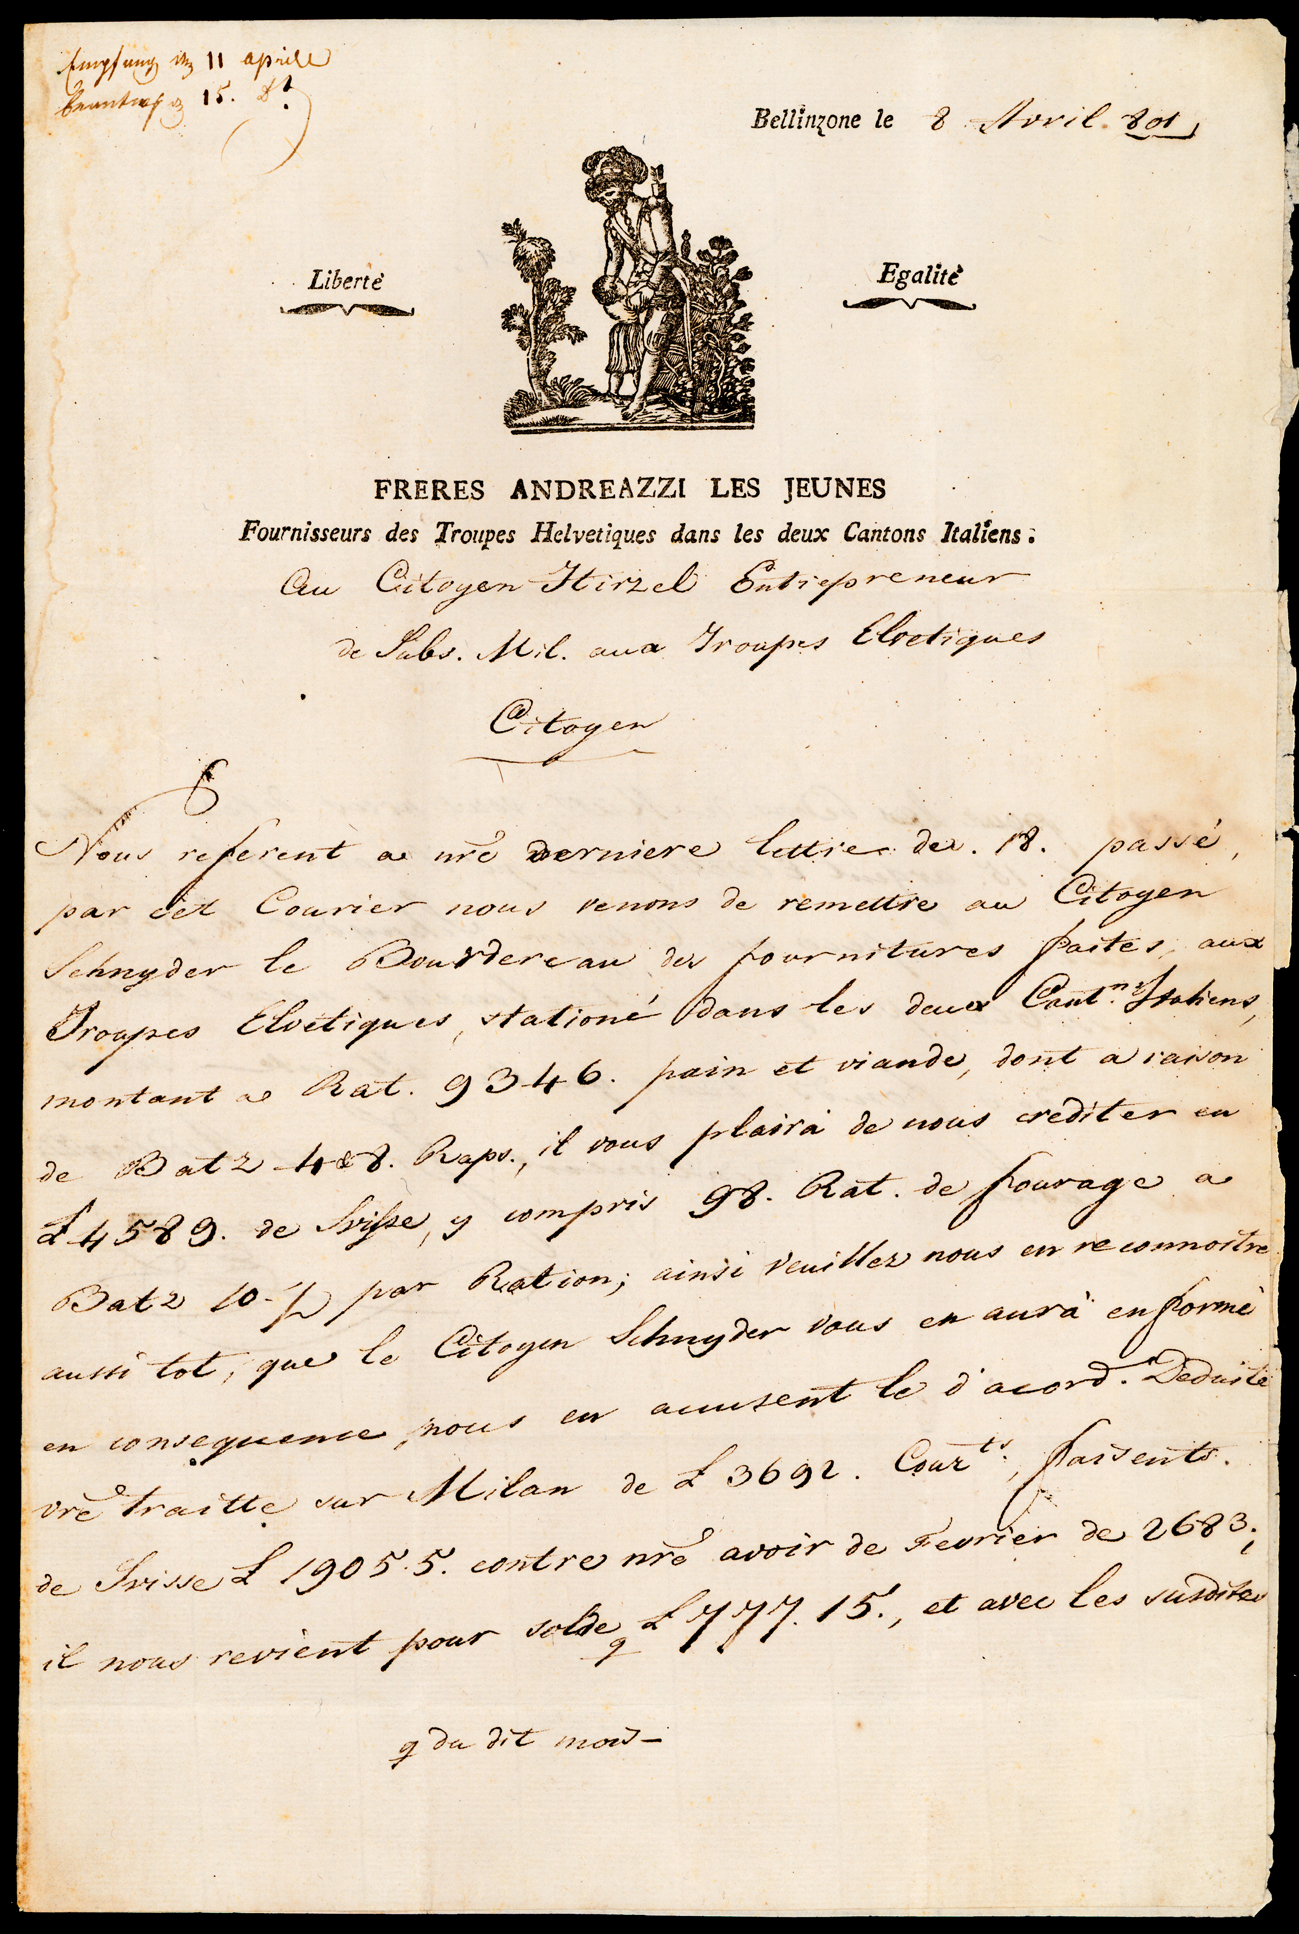 Empfang den 11 aprille
beantwort 15. dt.
Bellinzone le 8 Avril 801
Liberté
Egalité
FRERES ANDREAZZI LES JEUNES
Fournisseurs des Troupes Helvetiques dans les deux Cantons Italiens:
Au Citoyen Hirzel Entrepreneur
de Subs. Mil. aux Troupes Elvetiques
Citoyen
Nous referent a nre derniere lettre de 18. passé,
par cet Courier nous venons de remettre au Citoyen
Schnyder le Bourdereau des fournitures faites, aux
Troupes Elvetiques, stationé dans les deux Cant.ns Italiens,
montant a Rat. 9346. pain et viande, dont a raison
de Batz 4 & 8. Raps., il vous plairà de nous crediter en
L 4589. de Svisse, y compris 98. Rat. de fourage a
Batz 10 - ½ par Ration; ainsi veuillez nous en reconnoitre
aussi tot, que le Citoyen Schnyder vous en aurà enformé
en consequence, nous en accusent le d'acord. Deduite
vre traitte sur Milan de L 3692. Cour.ts, faisents.
de Svisse L 1905.5. contre nre avoir de Fevrier de 2683.;
il nous revient pour solde L 777.15., et avec les susdites
q du dit mois -